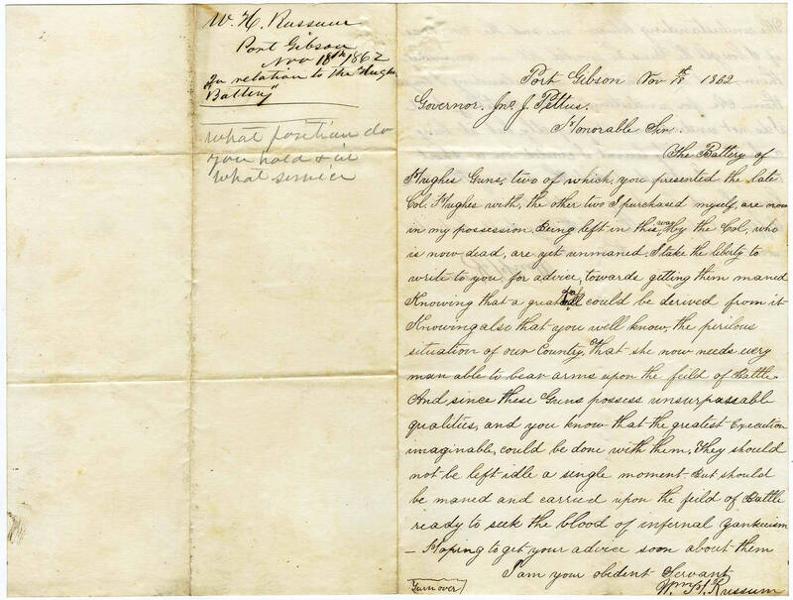 W. H. Russum
Port Gibson
Nov 18th 1862
In relation to the "Hughs
Battery"
What position do
you hold & in
what service
Port Gibson Nov 18th 1862
Governor. Jno J. Pettus.
Honorable Sir.
The Battery of
Hughes Guns, two of which, you presented the late
Col. Hughes with, the other two I purchased myself, are now
in my possession. Being left in this way by the Col, who
is now dead, are yet unmaned. I take the liberty to
write to you for advice, towards getting them maned
Knowing that a great deal could be derived from it
Knowing also that you well know, the perilous
situation of our Country, that she now needs every
man able to bear arms upon the feild of Battle.
And since these Guns possess unsurpassable
qualities, and you know that the greatest execution
imaginable, could be done with them, They should
not be left idle a single moment. But should
be maned and carried upon the feild of Battle
ready to seek the blood of infernal Yankeeism
— Hoping to get your advice soon about them
I am your obedient Servant
Wm. H. Russum
Turnover